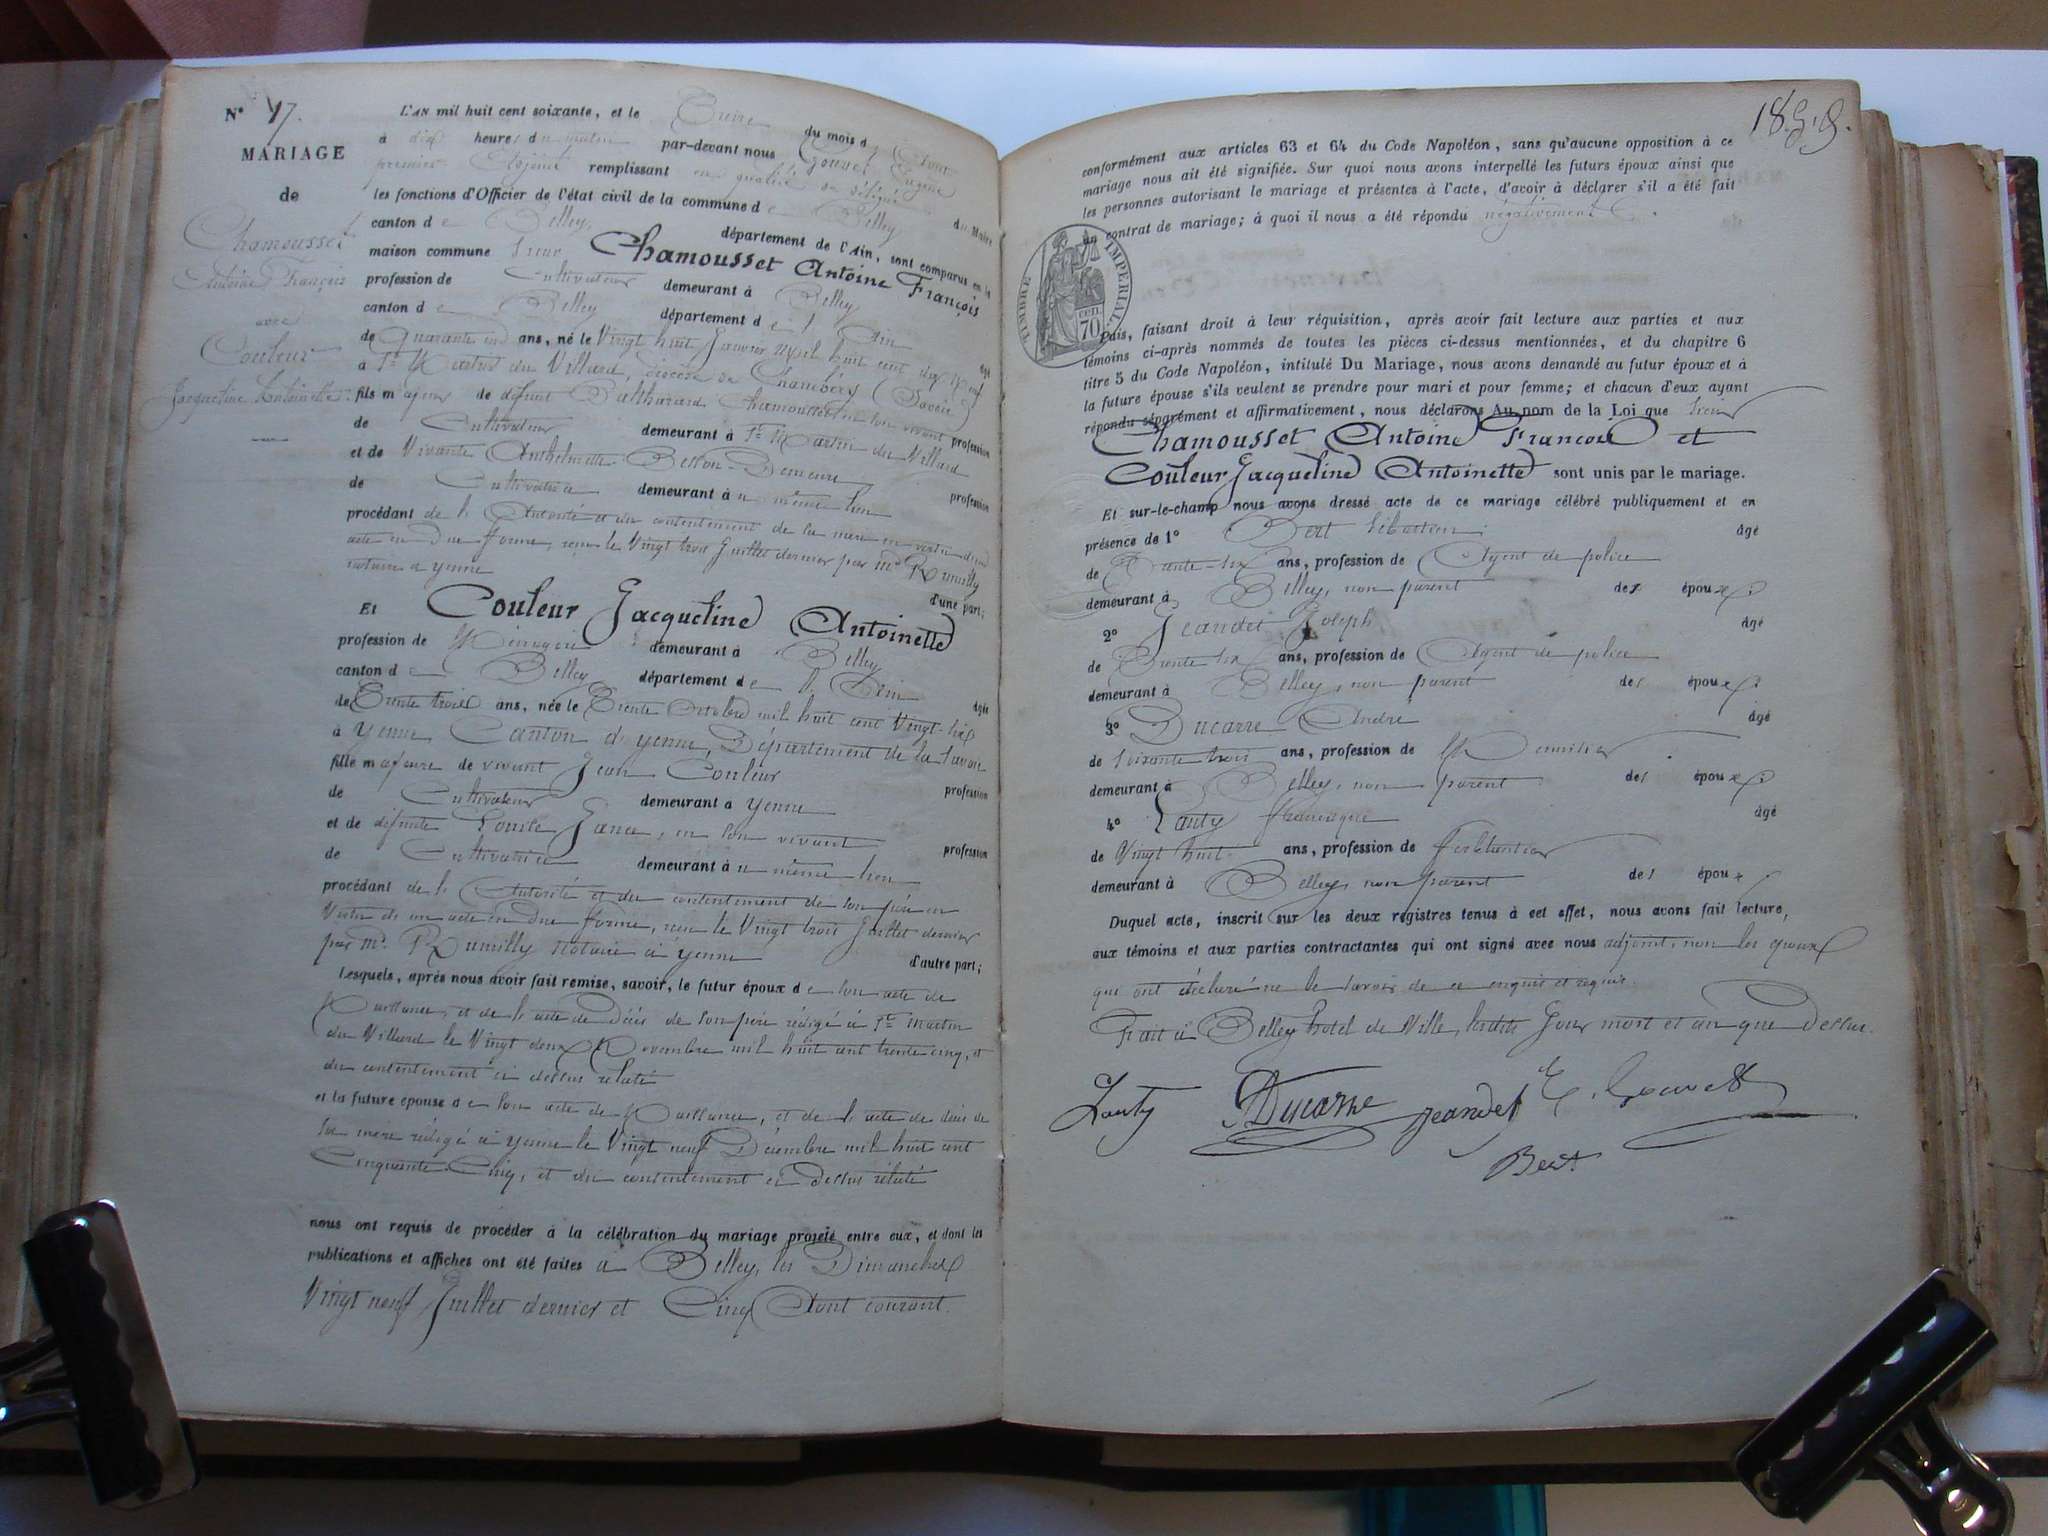 N° 17.
MARIAGE
de
Chamousset
Antoine François
avec
Couleur
Jacqueline Antoinette.
L'AN mil huit cent soixante, et le du mois d'Août
à dix heures du matin par-devant nous Gouvet Eugène
premier Adjoint remplissant en qualité de délégué du Maire
les fonctions d'Officier de l'état civil de la commune de Belley
canton de Belley, département de l'Ain, sont comparus en la
maison commune Sieur Chamousset Antoine François
profession de Cultivateur demeurant à Belley
canton de Belley département de l'Ain âgé
de Quarante un ans, né le Vingt huit Janvier Mil huit cent dix neuf
à St Martin du Villard, diocèse de Chambéry (Savoie)
fils majeur de défunt Balthazard Chamousset en son vivant profession
de Cultivateur demeurant à St Martin du Villard
et de Vivante Anthelmette profession
de Cultivatrice demeurant au même lieu
procédant de l'Autorité et du consentement de sa mère en vertu d'un
acte en Due forme, reçu le Vingt trois Juillet dernier par Me Rumilly
notaire à yenne d'une part;
Et Couleur Jacqueline Antoinette
profession de Ménagère demeurant à Belley
canton de Belley département de l'Ain âgée
de Trente trois ans, née le Trente Octobre mil huit cent Vingt-six
à Yenne Canton d'yenne, Département de la Savoie
fille majeure de vivant Jean Couleur profession
de Cultivateur demeurant à yenne
et de défunte Louise, en son vivant profession
de Cultivatrice demeurant au même lieu
procédant de l'Autorité et du consentement de son père en
Vertu de un acte en Due forme, reçu le Vingt trois Juillet dernier
par Me Rumilly Notaire à yenne d'autre part;
Lesquels, après nous avoir fait remise, savoir, le futur époux de son acte de
Naissance, et de l'acte de Décès de son père rédigé à St Martin
du Villard le Vingt deux Novembre mil huit cent trente cinq, et
du consentement ci dessus relaté
et la future épouse de son acte de Naissance, et de l'acte de décès de
sa mère rédigé à yenne le Vingt neuf Décembre mil huit cent
Cinquante Cinq, et du consentement ci Dessus relaté
nous ont requis de procéder à la célébration du mariage projeté entre eux, et dont les
publications et affiches ont été faites à Belley, les Dimanches
Vingt neuf Juillet dernier et Cinq Août courant.
conformément aux articles 63 et 64 du Code Napoléon, sans qu'aucune opposition à ce
mariage nous ait été signifiée. Sur quoi nous avons interpellé les futurs époux ainsi que
les personnes autorisant le mariage et présentes à l'acte, d'avoir à déclarer s'il a été fait
un contrat de mariage; à quoi il nous a été répondu négativement.
TIMBRE IMPERIAL
70 cen
Puis, faisant droit à leur réquisition, après avoir fait lecture aux parties et aux
témoins ci-après nommés de toutes les pièces ci-dessus mentionnées, et du chapitre 6
titre 5 du Code Napoléon, intitulé Du Mariage, nous avons demandé au futur époux et à
la future épouse s'ils veulent se prendre pour mari et pour femme; et chacun d'eux ayant
répondu séparément et affirmativement, nous déclarons Au nom de la Loi que Sieur
Chamousset Antoine Francois et
Couleur Jacqueline Antoinette sont unis par le mariage.
Et sur-le-champ nous avons dressé acte de ce mariage célébré publiquement et en
présence de 1° Bert Sébastien âgé
de Trente-six ans, profession de Agent de police
demeurant à Belley, non parent des époux.
2° Jeandet Joseph âgé
de Trente six ans, profession de Agent de police
demeurant à Belley, non parent des époux.
3° Ducarre André âgé
de Soixante trois ans, profession de Menuisier
demeurant à Belley, non parent des époux.
4° âgé
de Vingt huit ans, profession de Ferblantier
demeurant à Belley, non parent des époux
Duquel acte, inscrit sur les deux registres tenus à cet effet, nous avons fait lecture,
aux témoins et aux parties contractantes qui ont signé avec nous adjoint, non les époux
qui ont déclaré ne le savoir de ce enquis et requis.
Fait à Belley hotel de Ville, lesdits Jour mois et an que Dessus.
Ducarre Jeandet E. Gouvet
Bert